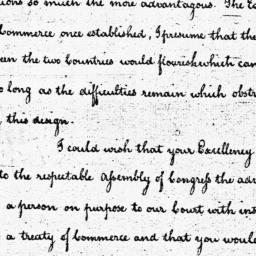 tions so much the more advantagous. The
Commerce once established, I presume that the
een the two Countries would flourish which can
o long as the difficulties remain which obst
this design.
I could wish that your Excellency
to the respectable Assembly of Congress the adv
a person on purpose to our Court with ins
a treaty of Commerce and that you would